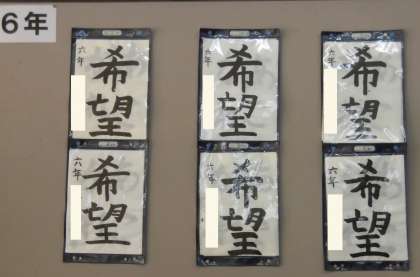 6年
六年
希望
六年
希望
六年
希望
六年
希望
六年
希望
六年
希望